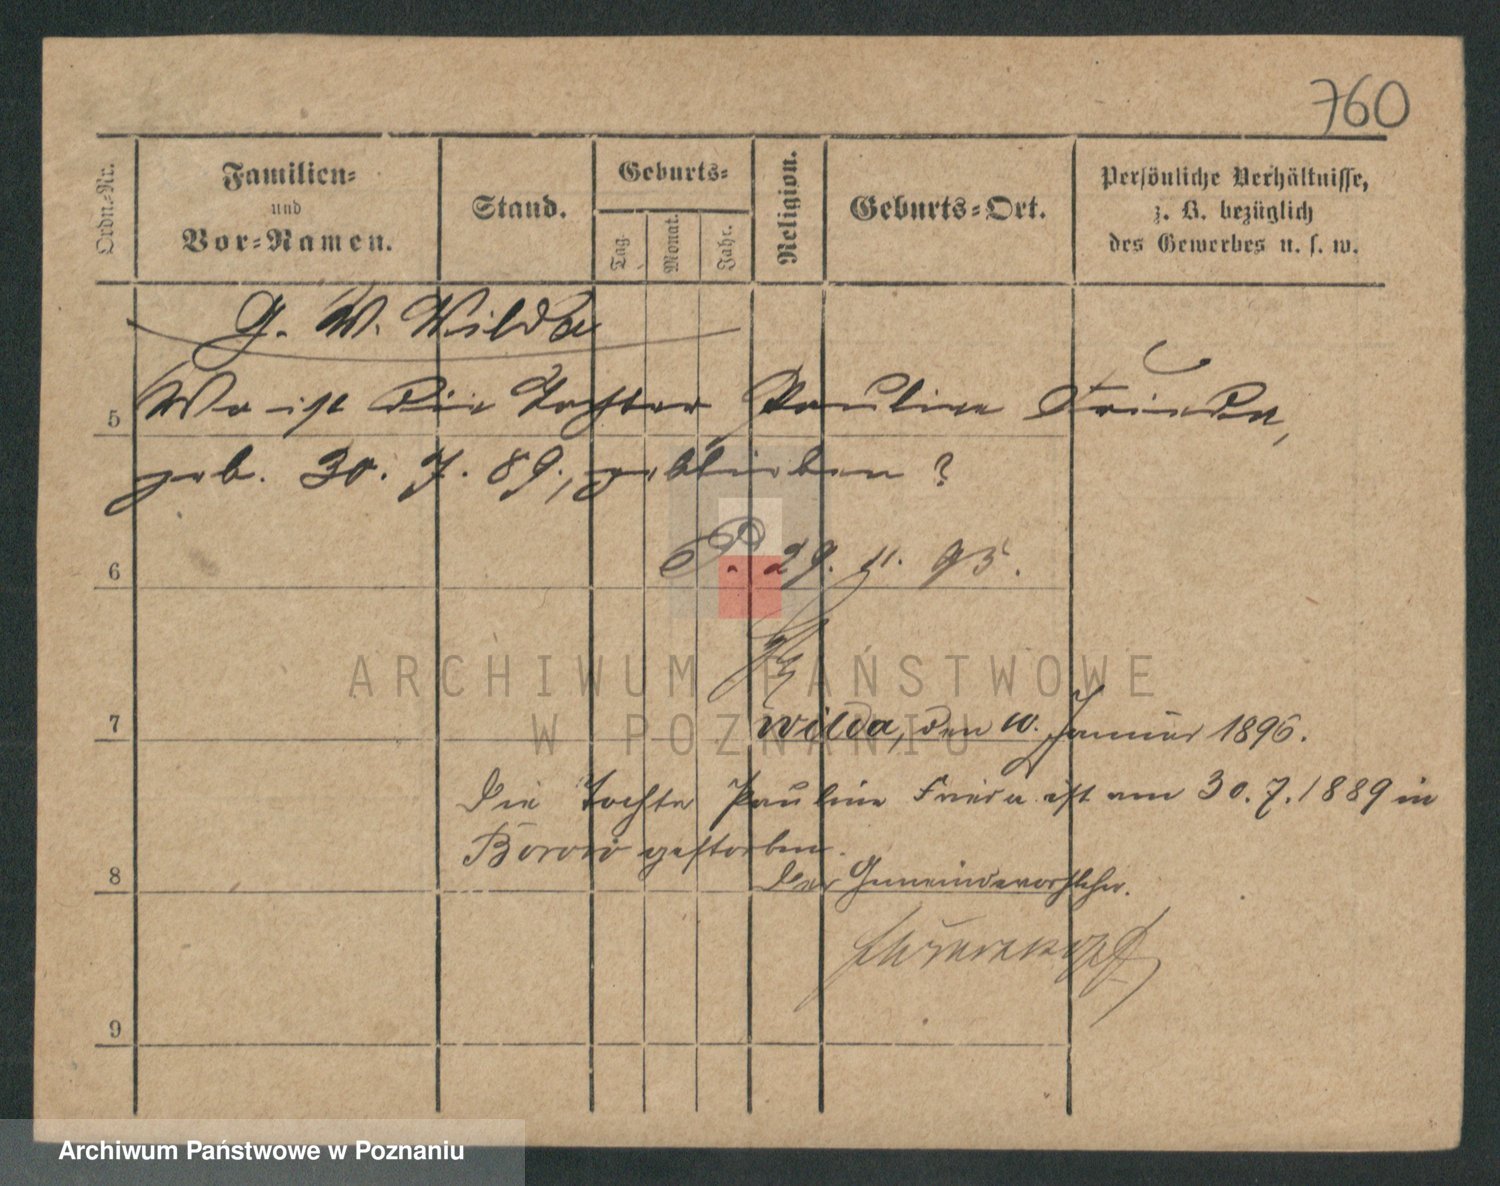 760
Ordn.-Nr.
Familien-
und
Vor-Namen.
Stand.
Geburts-
Tag.
Monat.
Jahr.
Religion.
Geburts-Ort.
Persönliche Verhältnisse,
z. B. bezüglich
des Gewerbes u. s. w.
G. W. Wilda
5
Wo ist die Tochter Pauline Frieda,
geb. 30. 7. 89, geblieben?
P. 29. 11. 95.
6
ARCHIWUM PAŃSTWOWE
W POZNANIU
7
Wilda, den 10. Januar 1896.
Die Tochter Pauline Frieda ist am 30. 7. 1889 in
gestorben.
8
Der Gemeindevorsteher.
9
Archiwum Państwowe w Poznaniu